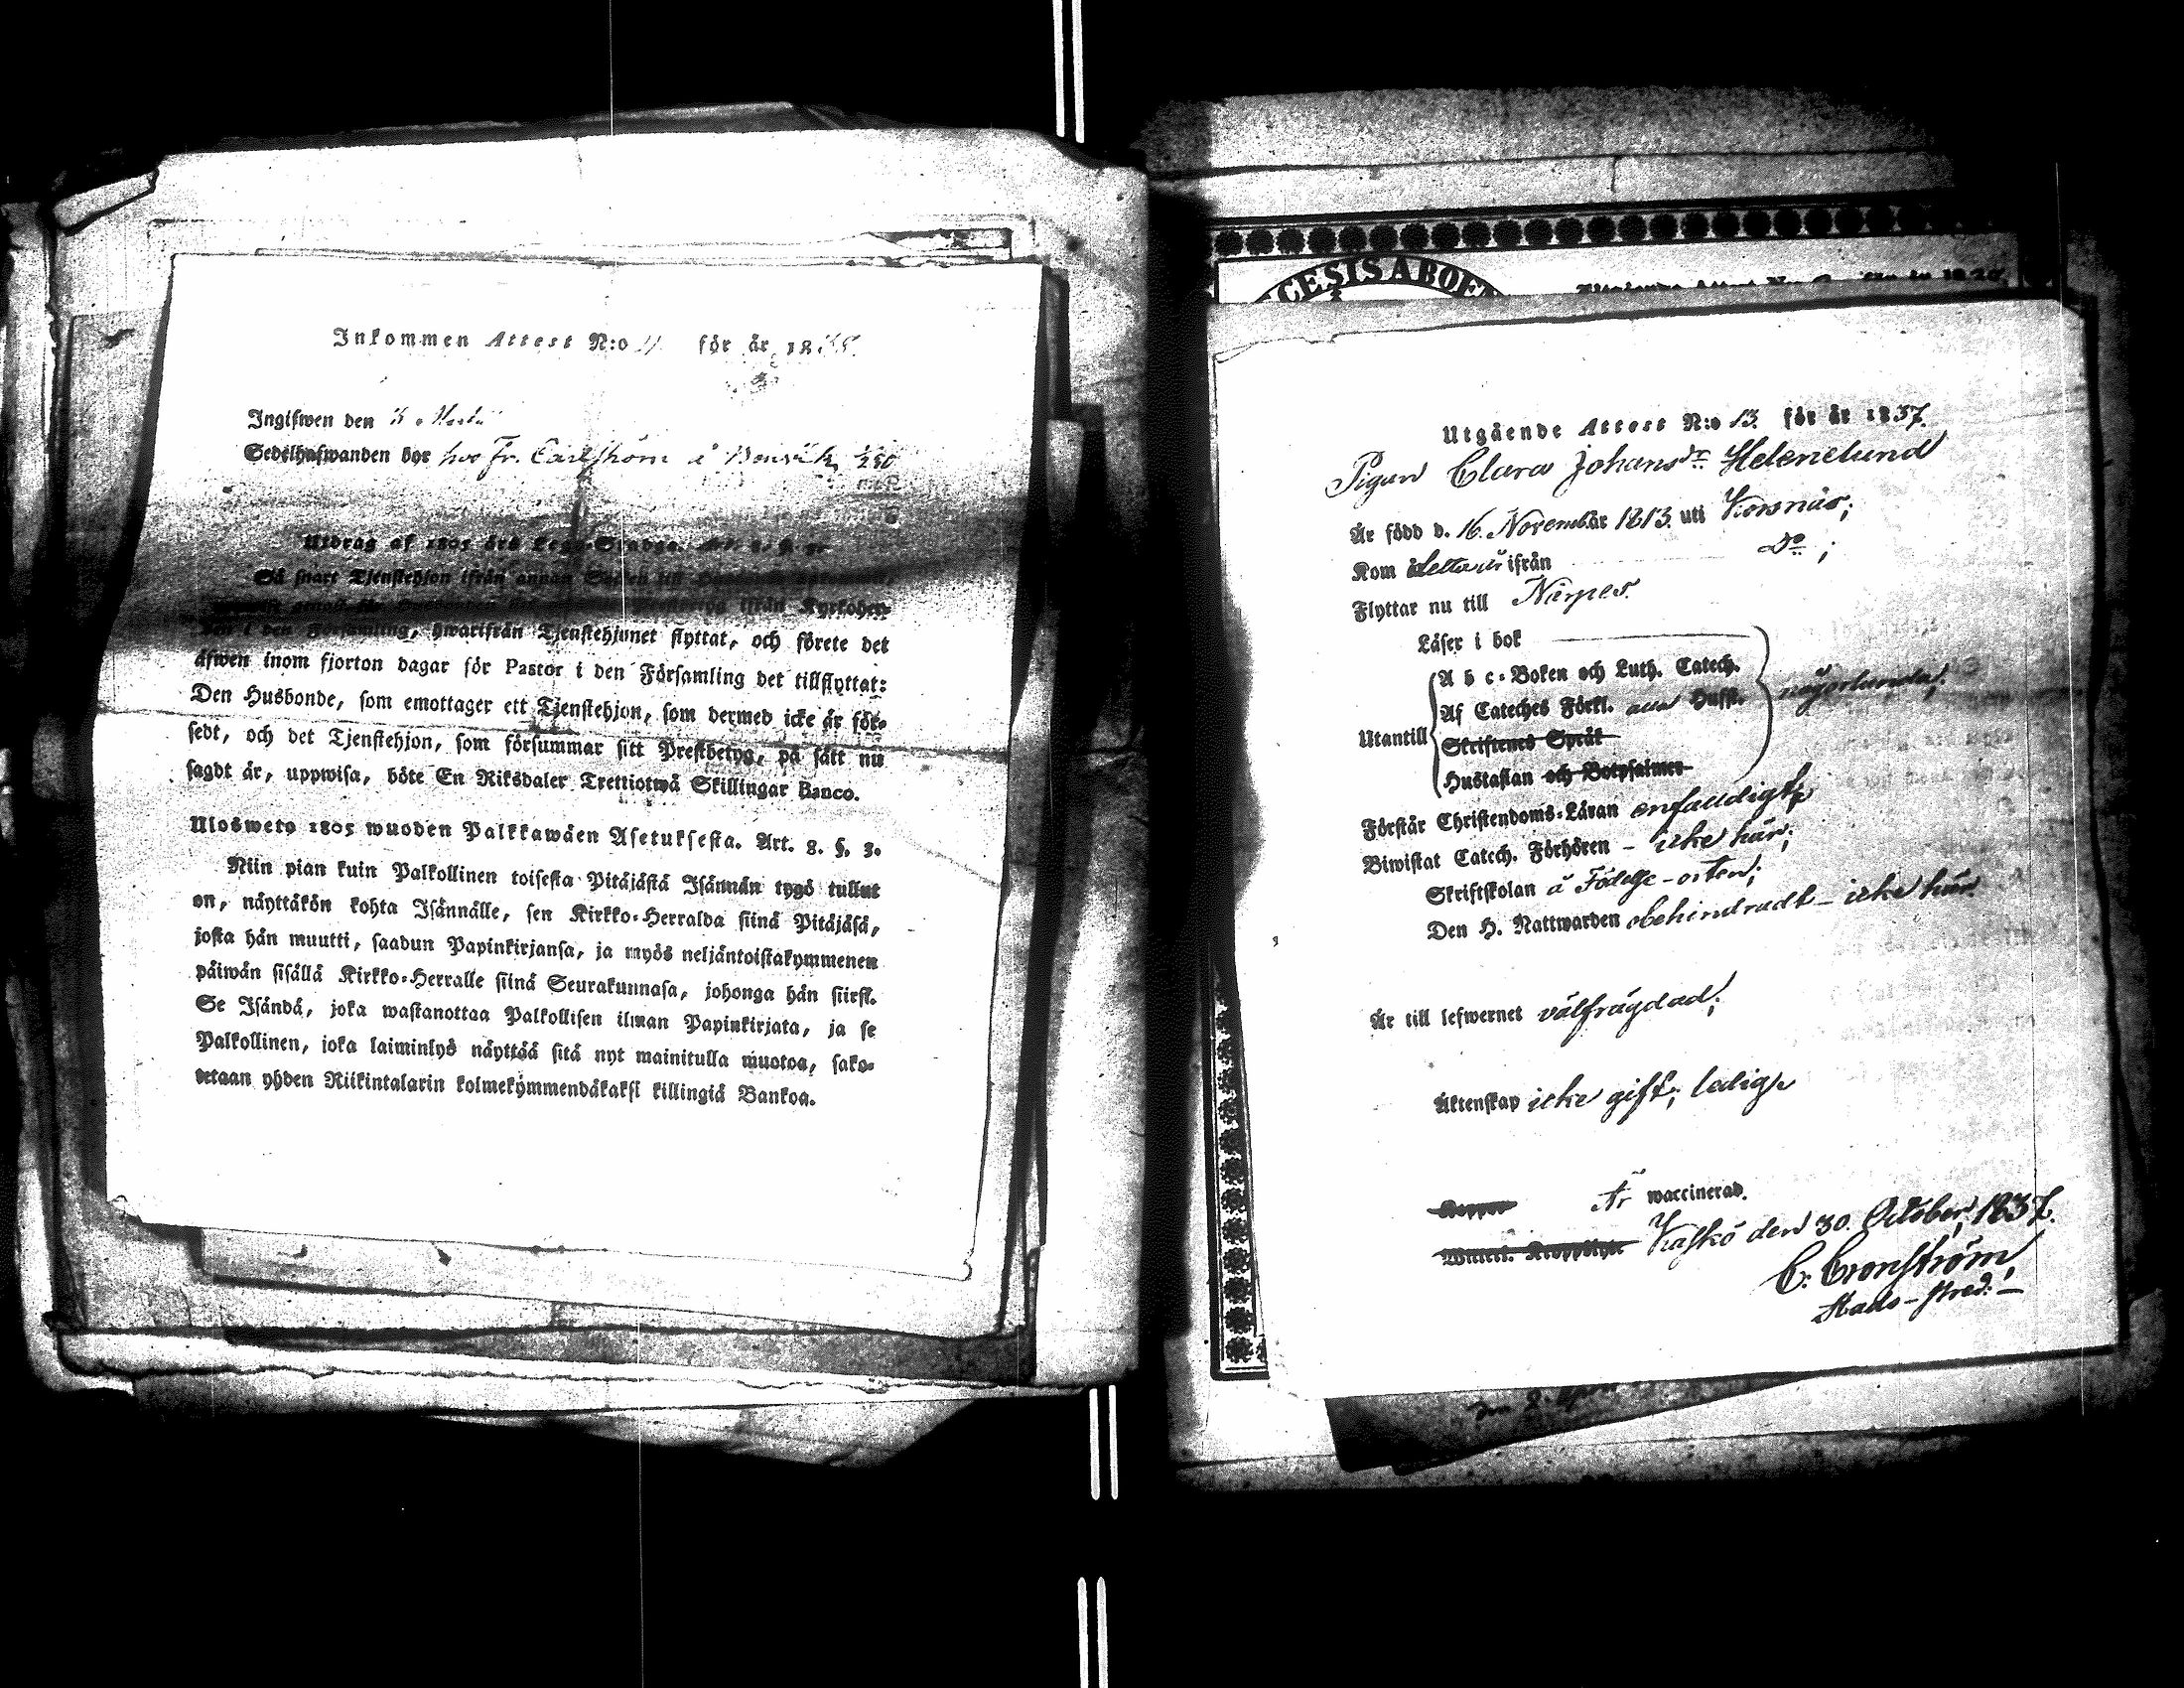 Inkommen Attest N:o 4. för år 1838.
Ingifwen den 3 Martii
Sedelhafwanden bor hos Fr. Carlström i Benvik,
Utdrag af 1805 års Lego-Stadga. Art. 8. §. 3.
Så snart Tjenstehjon ifrån annan Socken till
ifrån Kyrkoher-
den i den Församling, hwarifrån Tjenstehjonet flyttat, och förete det
äfwen inom fjorton dagar för Pastor i den Församling det tillflyttat:
Den Husbonde, som emottager ett Tjenstehjon, som dermed icke är för-
sedt, och det Tjenstehjon, som försummar sitt Prestbetyg, på sätt nu
sagdt är, uppwisa, böte En Riksdaler Trettiotwå Skillingar Banco.
Ulosweto 1805 wuoden Palkkawäen Asetuksesta. Art. 8. §. 3.
Niin pian kuin Palkollinen toisesta Pitäjästä Isännän tygö tullut
on, näyttäkön kohta Isännälle, sen Kirkko-Herralda siinä Pitäjäsä,
josta hän muutti, saadun Papinkirjansa, ja myös neljäntoistakymmenen
päiwän sisällä Kirkko-Herralle siinä Seurakunnasa, johonga hän siirsi.
Se Isändä, joka wastanottaa Palkollisen ilman Papinkirjata, ja se
Palkollinen, joka laiminlyö näyttää sitä nyt mainitulla muotoa, sako-
tetaan yhden Riikintalarin kolmekymmendäkaksi killingiä Bankoa.
CESIS ABOEN
Utgående Attest N:o 13. för år 1837.
Pigan Clara Johansdr Helenelund
Är född d. 16. November 1813. uti Korsnäs;
Kom detta år ifrån Do;
Flyttar nu till Närpes.
Läser i bok
A b c-Boken och Luth. Catech.
Af Cateches Förkl. Hufst. någorlunda;
Utantill Skriftenes Språk
Hustaflan och Botpsalmer
Förstår Christendoms-Läran enfaldigt;
Biwistat Catech. Förhören - icke här;
Skriftskolan å Födelse-orten;
Den H. Nattwarden obehindradt - icke här
Är till lefwernet välfrägdad;
Äktenskap icke gift; ledig;
Koppor Är waccinerad.
Kaskö den 30. October, 1837.
C. Cronström,